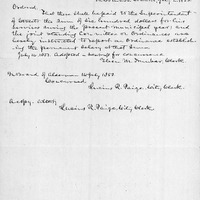 Ordered,
That there shall be paid to the Superintendent
of Streets the sum of five hundred dollars for his
services during the present municipal year; and
the joint standing Committee on Ordinances was
hereby instructed to report an Ordinance establish-
ing the permanent salary at that sum.
July 14, 1858. Adopted — Sent up for concurrence
Eben M. Dunbar, Clerk
In Board of Aldermen July 1858.
Concurred.
Lucius R. Paige, City Clerk.
A copy. Attest,
Lucius R. Paige, City Clerk